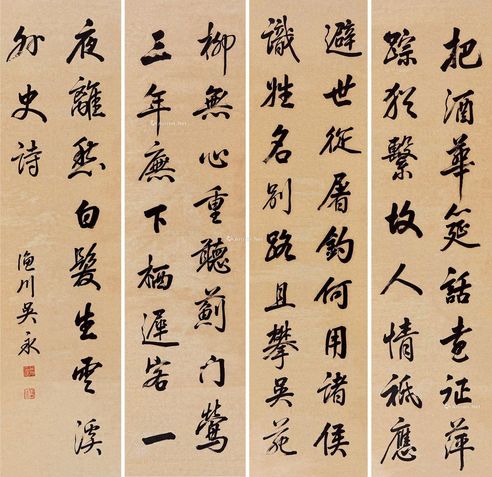 把酒華筵話征萍
踪猶繫故人情祇應
避世從屠釣何用諸侯
識姓名別路且攀吳苑
柳無心重聽薊門鶯
三年廡下栖遲客一
夜離愁白髮生雲溪
外史詩
漁川吳永